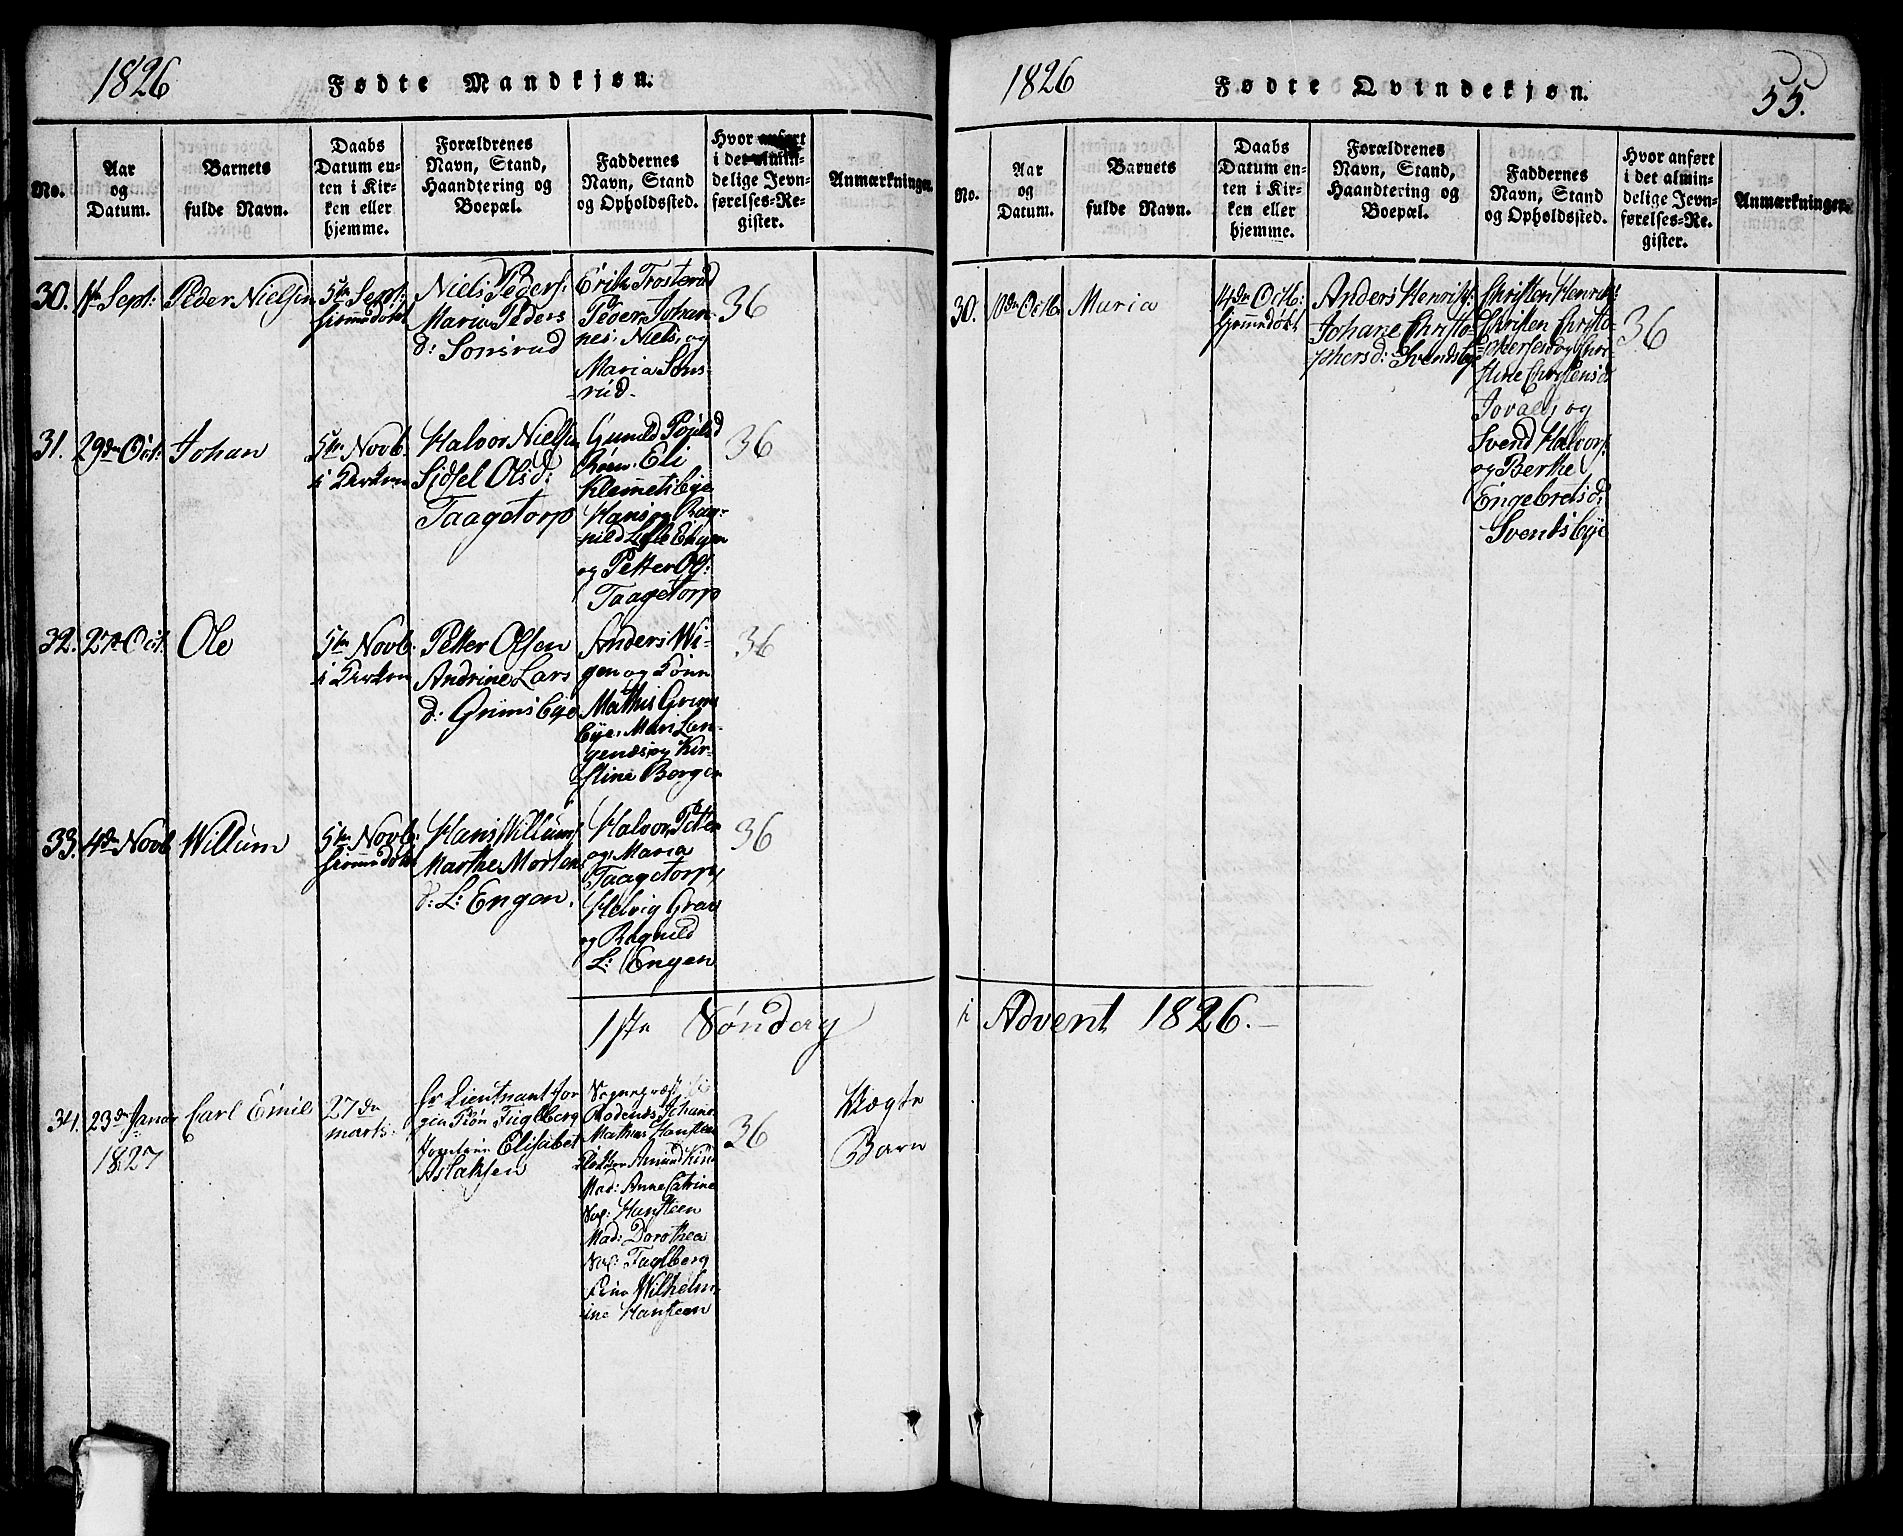 1826
Fødte Mandkjøn.
No.
Aar
og
Datum.
Barnets
fulde Navn.
Daabs
Datum en-
ten i Kir-
ken eller
hjemme.
Forældrenes
Navn, Stand,
Haandtering og
Boepæl.
Faddernes
Navn, Stand
og Opholdssted.
Hvor anført
i det almin-
delige Jevn-
førelses-Re-
gister.
Anmærkninger.
30.
1ste Sept:
Peder Nielsen
5te Sept:
hjemmedøbt
Niels Peders:
Maria Peders
d: Sonsrud
Erik Trosterud
Peder, Johan-
nes, Niels, og
Maria Sons-
rud.
36
31.
29de Oct:
Johan
5te Novb:
i Kirken
Halvor Nielsen
Sidsel Olsd:
Taagetorp
Gunild
Eli
Klemetsbye
Hans og Rag-
nild Lille Engen
og Petter Ols:
Taagetorp
36
32.
27de Oct:
Ole
5te Novb:
i Kirken
Petter Olsen
Andrine Lars
d: Grimsbye
Anders Wi-
gen og Kone
Mathis Grims
bye, Mari Lan-
genæs og Kir-
stine Borgen
36
33.
4de Novb
Willum
5te Novb:
hjemmedøbt
Hans Willums:
Marthe Morten
d: L: Engen.
Halvor, Petter
og Maria
Taagetorp,
Helvig Grav
og Ragnild
L: Engen
36
1ste Søndag
34.
23de Janar
1827
Carl Emil
27de
marts.
Hr Lieutnant Jør
gen Bøn Fuglberg
Jomfrue Elisabet
Aslaksen
Sogneprest
Rodenes Johan
Mathias Hansteen
Klokker Amund
Mad: Anne Catrine
Sop: Hansteen
Mad: Dorothea
Sop: Fuglberg
Wilhelm-
ine Hansteen
36
Uægte
Barn
1826
Fødte Qvindekjøn.
55.
No.
Aar
og
Datum.
Barnets
fulde Navn.
Daabs
Datum en-
ten i Kir-
ken eller
hjemme.
Forældrenes
Navn, Stand,
Haandtering og
Boepæl.
Faddernes
Navn, Stand
og Opholdssted.
Hvor anført
i det almin-
delige Jevn-
førelses-Re-
gister.
Anmærkninger.
30.
10de Octb.
Maria
14de Octb:
hjemmedøbt
Anders Henriks:
Johane Christo-
phersd: Svendsbye
Christen Henriks:
Christen Christo-
phersen og Chri-
stine Christensd
Joval, og
Svend Halvors:
og Berthe
Engebretsd:
Svendsbye
36
i Advent 1826.